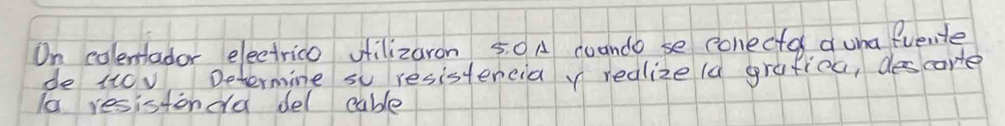 Un calentador electrico utilizaron 5.0A cuando se conecta a una fuente
de 110V Determine su resistencia y realize la grafica, descarte
la resistencia del cable